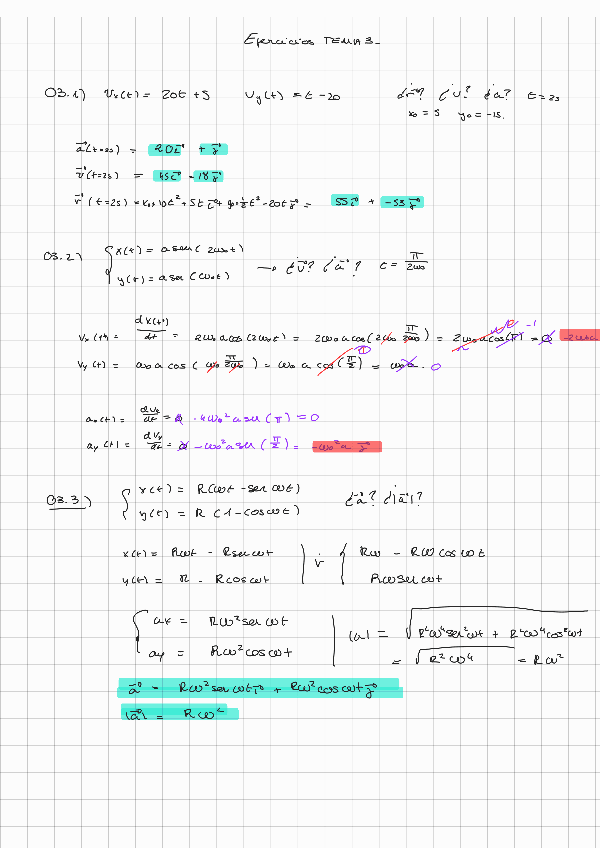 Ejercicios TEMA 3_
03.1) Vx(t) = 20t + 5 Vy(t) = t - 20 ¿r⃗? ¿v⃗? ¿a⃗? t = 2s
x₀ = 5 y₀ = -15.
a⃗(t=2s) = 20i⃗ + j⃗
v⃗(t=2s) = 45i⃗ - 18j⃗
r⃗(t=2s) = 10t² + 5t i⃗ + ½t² - 20t j⃗ = 55i⃗ + -53j⃗
03.2) { x(t) = a sen(2ω₀t)
y(t) = a sen(ω₀t) → ¿v⃗? ¿a⃗? t = π/2ω₀
Vx(t) = dx(t)/dt = 2ω₀a cos(2ω₀t) = 2ω₀a cos(2ω₀ π/2ω₀) = 2ω₀a cos(π) -1 = 0 -2ω₀a
Vy(t) = ω₀a cos(ω₀ π/2ω₀) = ω₀a cos(π/2) = ω₀a · 0
ax(t) = dVx/dt = 0 -4ω₀²a sen(π) = 0
ay(t) = dVy/dt = 0 -ω₀²a sen(π/2) = -ω₀²a j⃗
03.3) { x(t) = R(ωt - sen ωt)
y(t) = R(1 - cos ωt) ¿a⃗? ¿|a⃗|?
x(t) = Rωt - R sen ωt | v { Rω - Rω cos ωt
y(t) = R - R cos ωt | Rω sen ωt
{ ax = Rω² sen ωt | |a| = √R²ω⁴sen²ωt + R²ω⁴cos²ωt
ay = Rω² cos ωt | = √R²ω⁴ = Rω²
a⃗ = Rω² sen ωt i⃗ + Rω² cos ωt j⃗
|a⃗| = Rω²